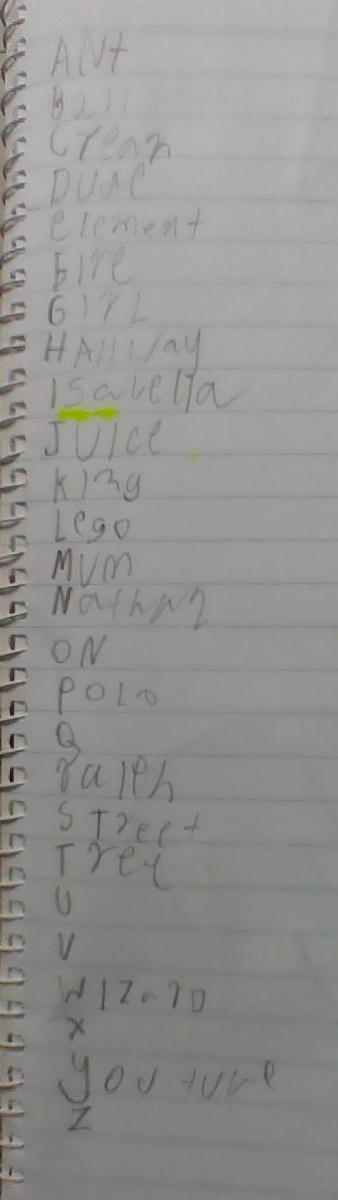 ANt
Ball
Crean
DUDE
element
FIRE
GIRL
HAllWay
ISabella
JUICE
KIng
Lego
MUM
Nathan
ON
POLO
Q
ralph
STreet
Tree
U
V
WIZarD
X
YouTube
Z